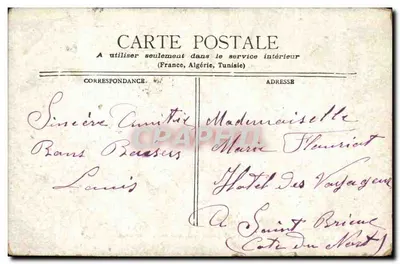 CARTE POSTALE
A utiliser seulement dans le service intérieur
(France, Algérie, Tunisie)
CORRESPONDANCE
ADRESSE
Sincère Amitié
Bons Baisers
Louis
Mademoiselle
Marie Fleuriot
Hotel des Voyageurs
A Saint Brieuc
(Cote du Nord)
CPAPHIL